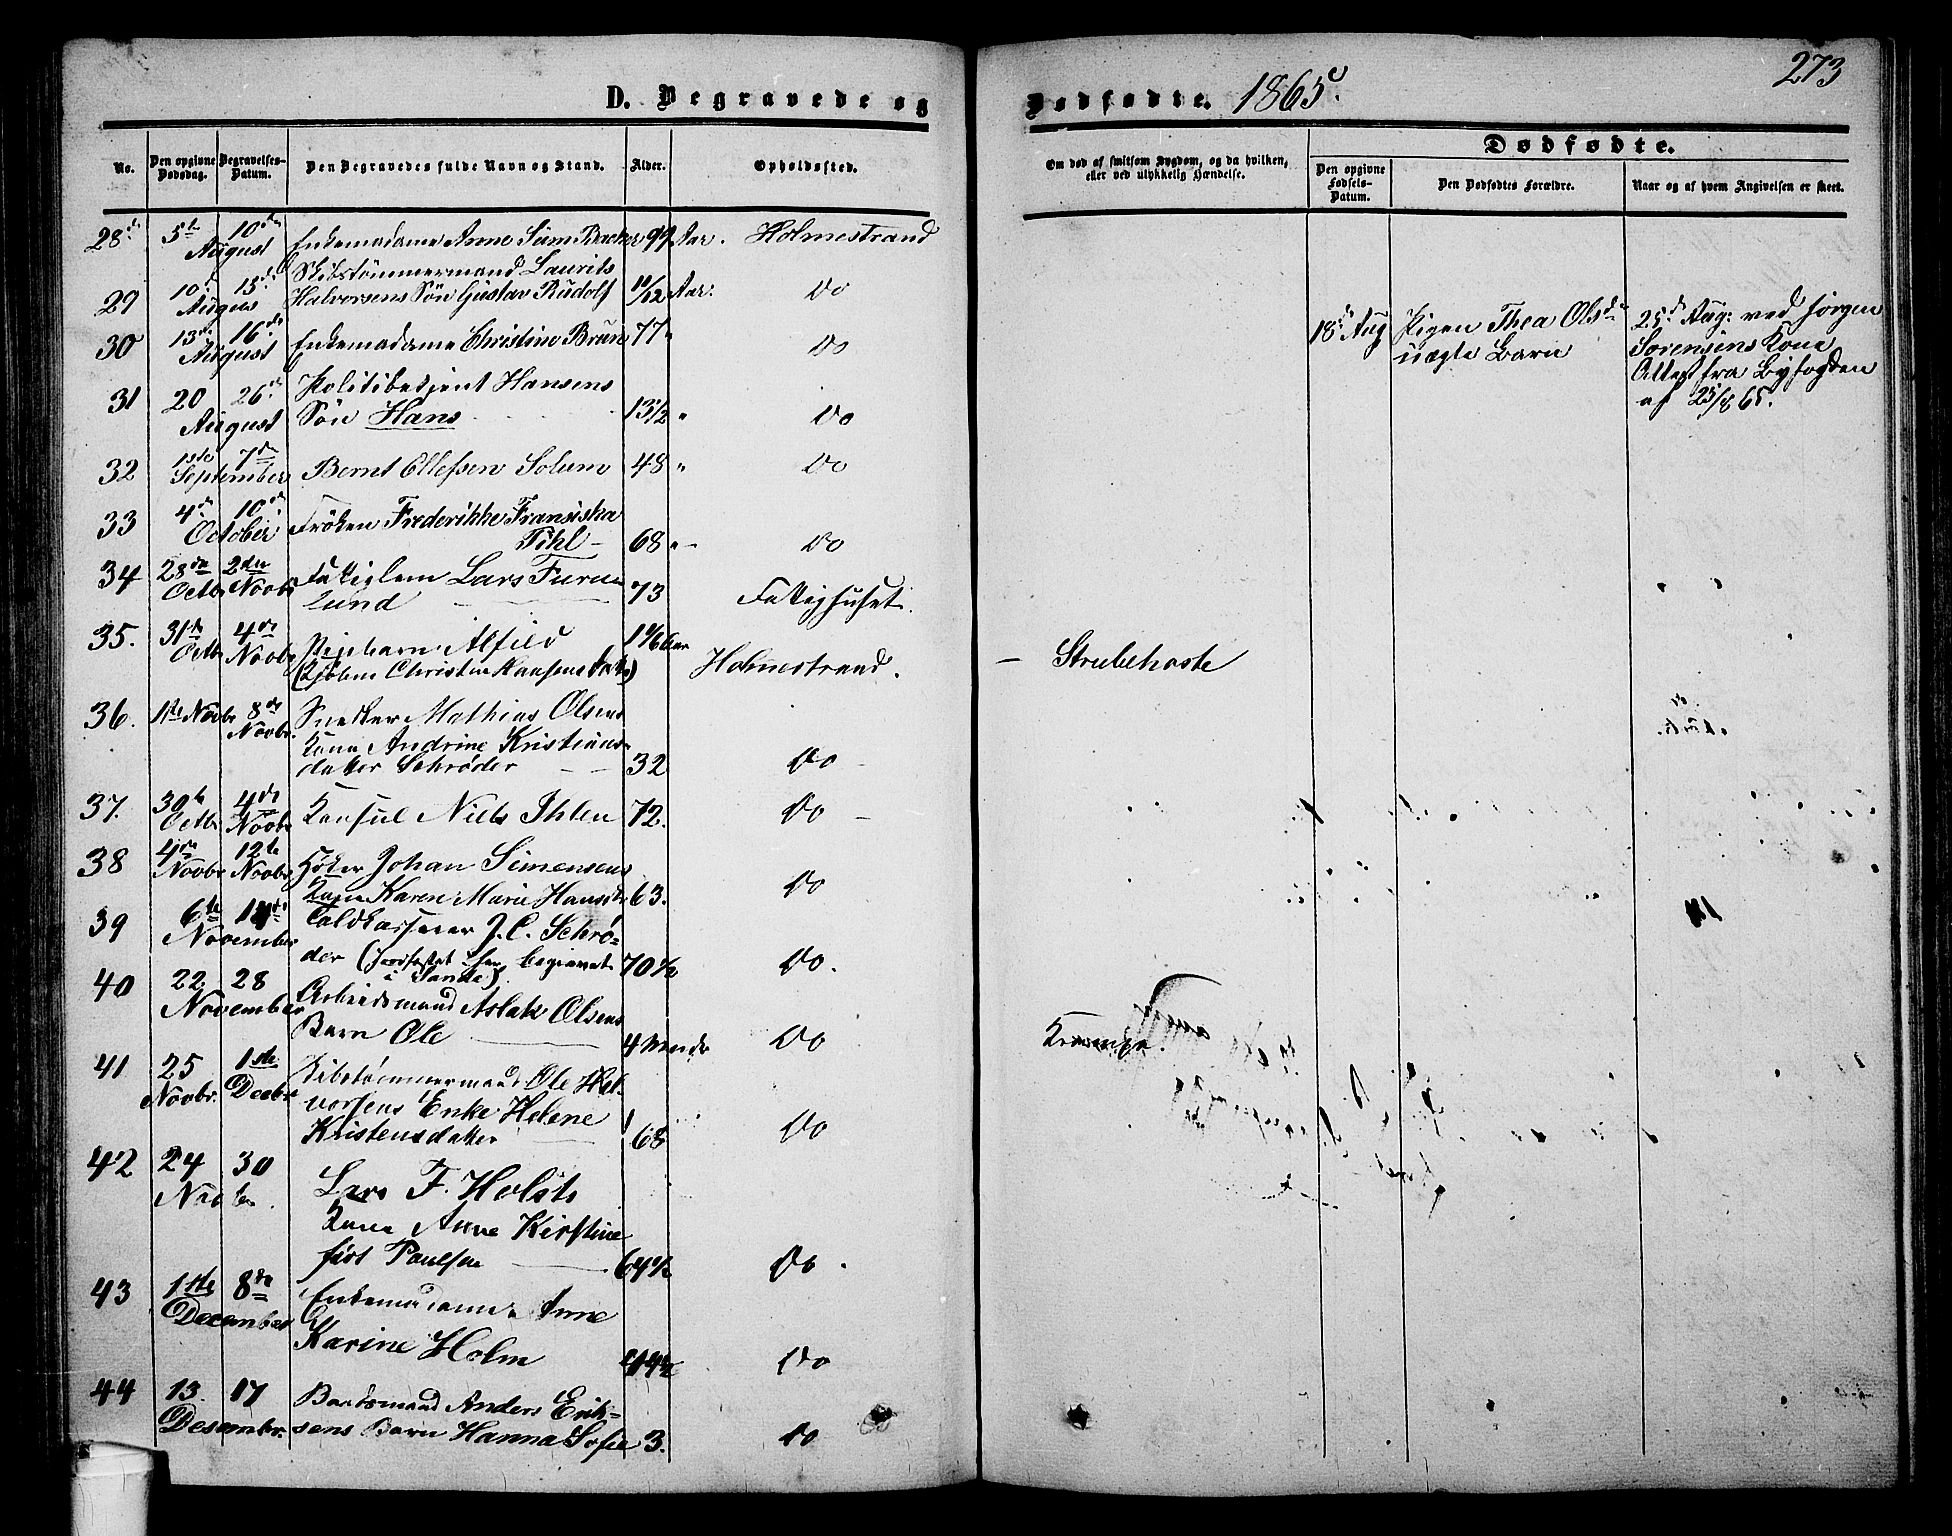 D. Begravede og
Dødfødte. 1865
273
No.
Den opgivne Dødsdag.
Begravelses-Datum.
Den Begravedes fulde Navn og Stand.
Alder.
Opholdssted.
Om død af smitsom Sygdom, og da hvilken, eller ved ulykkelig Hændelse.
Dødfødte.
Den opgivne Fødsels-Datum.
Den Dødfødtes Forældre.
Naar og af hvem Angivelsen er skeet.
28 5te 10de August Enkemadame Anne Aar. Holmestrand
Skibstømmermand Laurits
29 10de 15de August Halvorsens Søn Gustav Rudolf 11/12 Aar. Do
30 13de 16de August Enkemadame Christine Brun 77 " Do
31 20 26de August Politibetjent Hansens
Søn Hans 13½ " Do
32 1ste 7de September Bernt Ellefsen Solum 48 " Do
33 4de 10de October Frøken Frederikke Fransiska
Tihl 68 " Do
34 28de Octbr 2den Novbr Fattiglem Lars Furu
lund 73 Fattighuset.
35. 31te Octbr 4de Novbr Pigebarn Alfild
Holmestrand. Strubehoste
36. 1ste Novbr 8de Novbr. Snedker Mathias Olsens
Kone Andrine Kristians-
datter Schrøder 32 Do
37. 30te Octbr 4de Novbr Konsul Niels Ihlen 72. Do
38 4de Novbr 12te Novbr. Høker Johan Simensens
Kone Karen Marie Hansdr 63. Do
39 6te November Toldkasserer J. C. Schrø-
der ( begravet
i Sande) 70½ Do.
40 22 28 November Arbeidsmand Aslak Olsens
Barn Ole 4 Do Krampe.
41 25 Novbr. 1ste Decbr Skibstømmermand Ole Hal-
vorsens Enke Helene
Kristensdatter 68 Do
42 24 30 Novbr. Lars F. Holsts
Kone Anne Kirstine
født Paulsen 64½ Do.
43 1ste 8de December Enkemadame Anne
Karine Holm Do
44 13 17 Desembr. Baadsmand Anders Erik-
sens Barn Hanna Sofie 3. Do
18de Aug Pigen Thea Olsdr
uægte Barn
25de Aug: ved Jørgen
Sørensens Kone
Attest fra Byfogden
af 25/8 65.